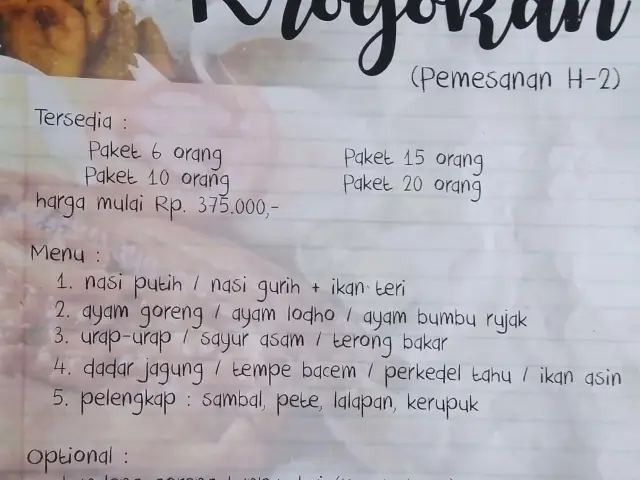 Kroyokan
(Pemesanan H-2)
Tersedia :
Paket 6 orang
Paket 15 orang
Paket 10 orang
Paket 20 orang
harga mulai Rp. 375.000,-
Menu :
1. nasi putih / nasi gurih + ikan teri
2. ayam goreng / ayam lodho / ayam bumbu rujak
3. urap-urap / sayur asam / terong bakar
4. dadar jagung / tempe bacem / perkedel tahu / ikan asin
5. pelengkap : sambal, pete, lalapan, kerupuk
Optional :